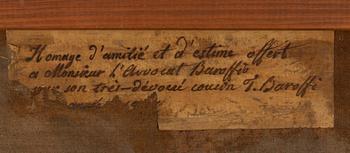 Homage d'amitié et d'estime offert
a Monsieur l'Avvocat Baroffio
son très-dévoué cousin J. Baroffi